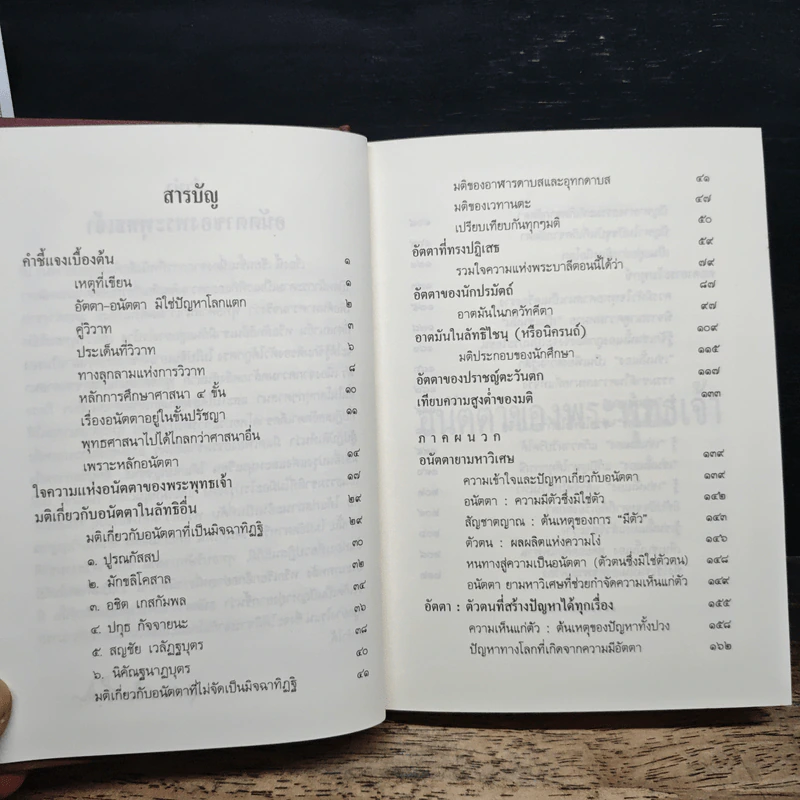 สารบัญ
คำชี้แจงเบื้องต้น ๑
เหตุที่เขียน ๑
อัตตา-อนัตตา มิใช่ปัญหาโลกแตก ๒
คู่วิวาท ๓
ประเด็นที่วิวาท ๖
ทางลุกลามแห่งการวิวาท ๘
หลักการศึกษาศาสนา ๔ ขั้น ๑๐
เรื่องอนัตตาอยู่ในขั้นปรัชญา ๑๑
พุทธศาสนาไปได้ไกลกว่าศาสนาอื่น
เพราะหลักอนัตตา ๑๔
ใจความแห่งอนัตตาของพระพุทธเจ้า ๑๗
มติเกี่ยวกับอนัตตาในลัทธิอื่น ๒๙
มติเกี่ยวกับอนัตตาที่เป็นมิจฉาทิฏฐิ ๒๙
๑. ปูรณกัสสป ๓๐
๒. มักขลิโคสาล ๓๒
๓. อชิต เกสกัมพล ๓๔
๔. ปกุธ กัจจายนะ ๓๖
๕. สญชัย เวลัฏฐบุตร ๓๘
๖. นิคัณฐนาฏบุตร ๔๐
มติเกี่ยวกับอนัตตาที่ไม่จัดเป็นมิจฉาทิฏฐิ ๔๑
มติของอาฬารดาบสและอุทกดาบส ๔๑
มติของเวทานตะ ๔๗
เปรียบเทียบกันทุกๆมติ ๕๐
อัตตาที่ทรงปฏิเสธ ๕๙
รวมใจความแห่งพระบาลีตอนนี้ได้ว่า ๗๙
อัตตาของนักปรมัตถ์ ๘๗
อาตมันในภควัทคีตา ๙๗
อาตมันในลัทธิไชนฺ (หรือนิครนถ์) ๑๐๙
มติประกอบของนักศึกษา ๑๑๕
อัตตาของปราชญ์ตะวันตก ๑๑๗
เทียบความสูงต่ำของมติ ๑๓๓
ภาคผนวก
อนัตตายามหาวิเศษ ๑๓๙
ความเข้าใจและปัญหาเกี่ยวกับอนัตตา ๑๓๙
อนัตตา : ความมีตัวซึ่งมิใช่ตัว ๑๔๒
สัญชาตญาณ : ต้นเหตุของการ “มีตัว” ๑๔๓
ตัวตน : ผลผลิตแห่งความโง่ ๑๔๖
หนทางสู่ความเป็นอนัตตา (ตัวตนซึ่งมิใช่ตัวตน) ๑๔๘
อนัตตา ยามหาวิเศษที่ช่วยกำจัดความเห็นแก่ตัว ๑๔๙
อัตตา : ตัวตนที่สร้างปัญหาได้ทุกเรื่อง ๑๕๕
ความเห็นแก่ตัว : ต้นเหตุของปัญหาทั้งปวง ๑๕๘
ปัญหาทางโลกที่เกิดจากความมีอัตตา ๑๖๒